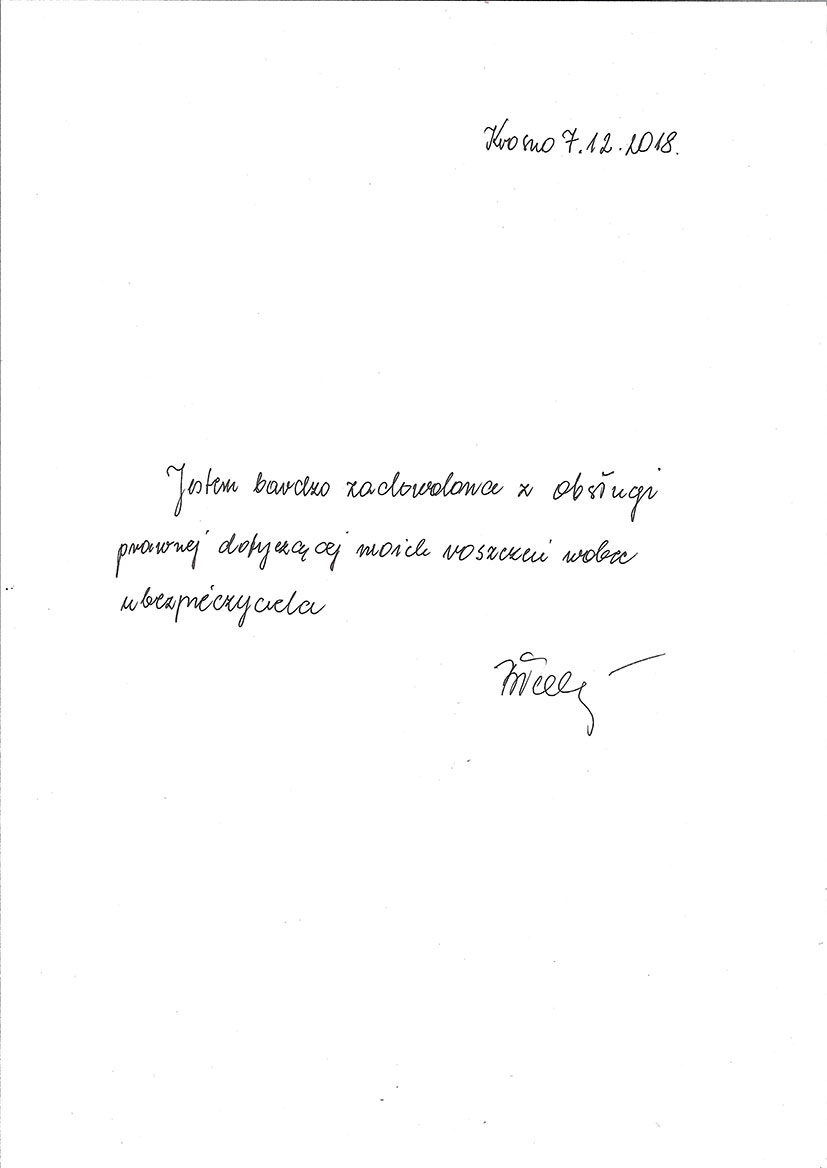 Krosno 7.12.2018.
Jestem bardzo zadowolona z obsługi
prawnej dotyczącej moich roszczeń wobec
ubezpieczyciela